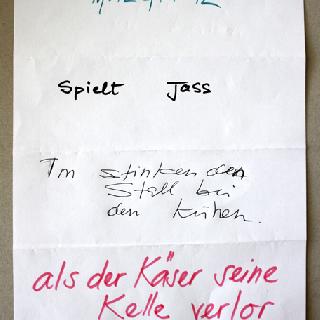 Spielt Jass
Im stinkenden
Stall bei
den Kühen.
als der Käser seine
Kelle verlor